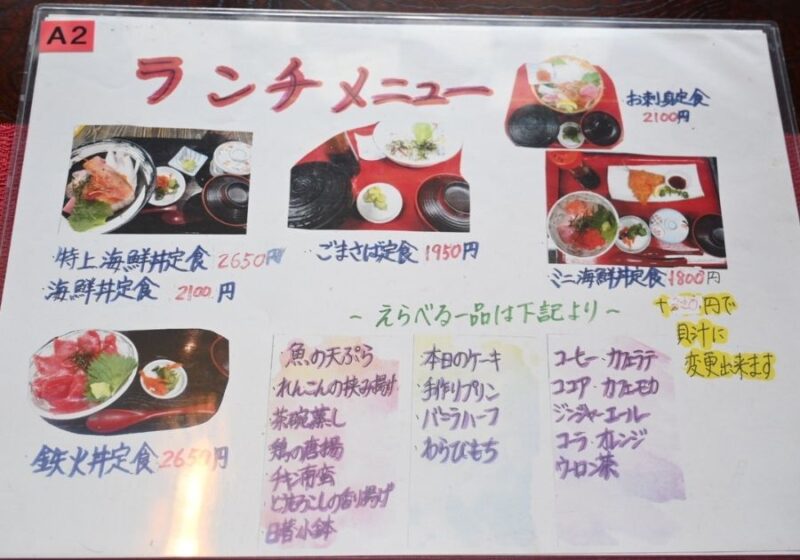 A2
ランチメニュー
お刺身定食
2100円
・特上海鮮丼定食 2650円
海鮮丼定食 2100円
・ごまさば定食 1950円
・ミニ海鮮丼定食 1800円
円で
貝汁に
変更出来ます
～えらべる一品は下記より～
鉄火丼定食 2650円
魚の天ぷら
れんこんの挟み揚げ
茶碗蒸し
鶏の唐揚
チキン南蛮
とうもろこしの香り揚げ
日替小鉢
本日のケーキ
手作りプリン
バニラハーフ
わらびもち
コーヒー・カフェラテ
ココア・カフェモカ
ジンジャーエール
コーラ・オレンジ
ウーロン茶